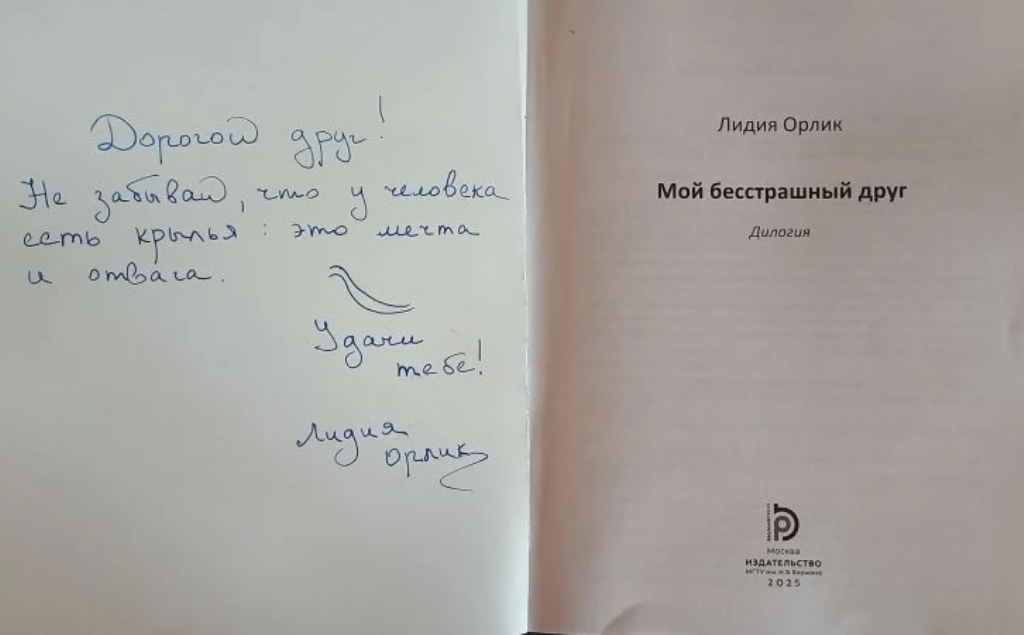 Дорогой друг!
Не забывай, что у человека
есть крылья: это мечта
и отвага.
Удачи
тебе!
Лидия
Орлик
Лидия Орлик
Мой бесстрашный друг
Дилогия
Москва
ИЗДАТЕЛЬСТВО
МГТУ им. Н.Э. Баумана
2025